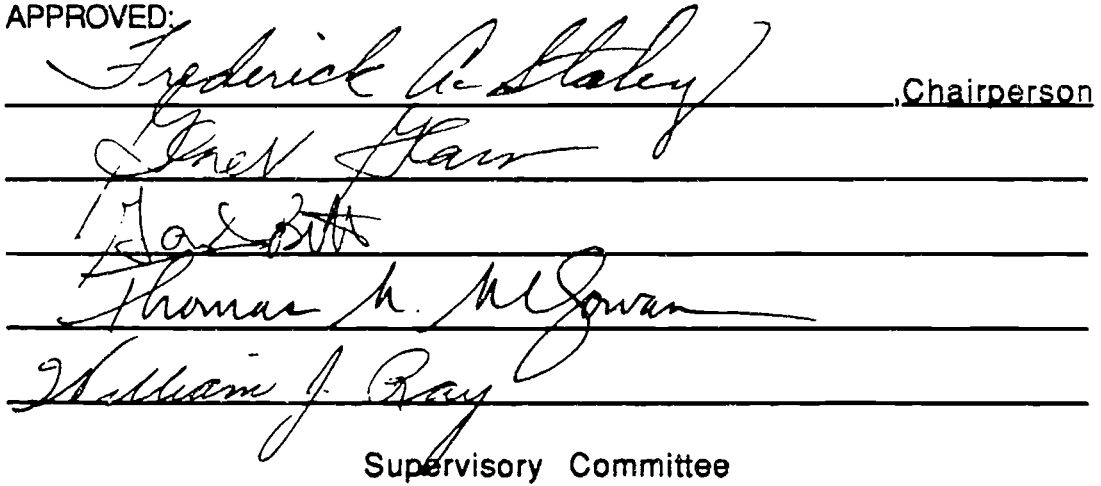 APPROVED:
Frederick A. Staley ,Chairperson
Thomas M. McGowan
William J. Ray
Supervisory Committee